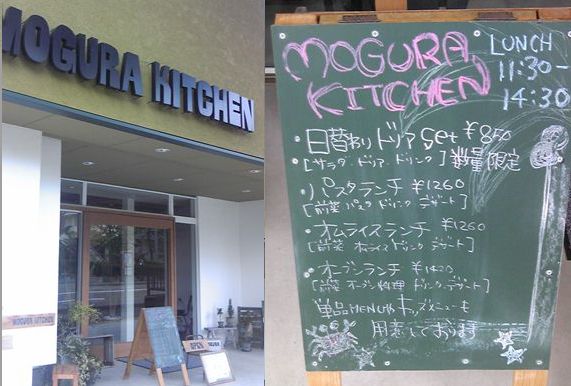 MOGURA KITCHEN
MOGURA KITCHEN
OPEN
MOGURA
KITCHEN
LUNCH
11:30-
14:30
日替わりドリアset ¥850
[サラダ・ドリア・ドリンク] 数量限定
・パスタランチ ¥1260
[前菜 パスタ ドリンク デザート]
・オムライスランチ ¥1260
[前菜 オムライス ドリンク デザート]
・オーブンランチ ¥1420
[前菜 オーブン料理 ドリンク デザート]
単品MENU&キッズメニューも
用意しております